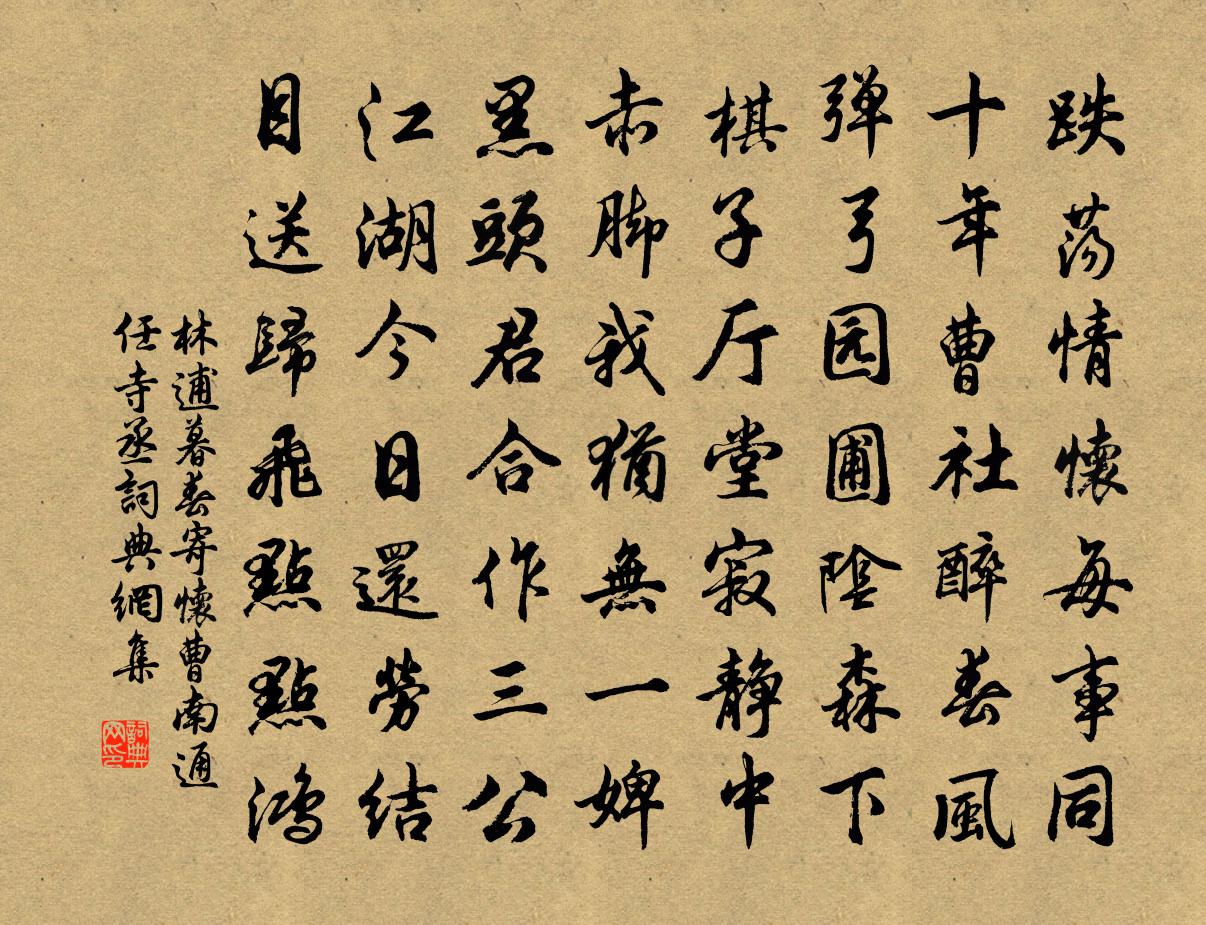 跌荡情懷每事同
十年曹社醉春風
弹弓园圃陰森下
棋子厅堂寂静中
赤脚我猶無一婢
黑頭君合作三公
江湖今日還勞结
目送歸飛點點鸿
林逋暮春寄懷曹南通
任寺丞詞典網集
詞典网印